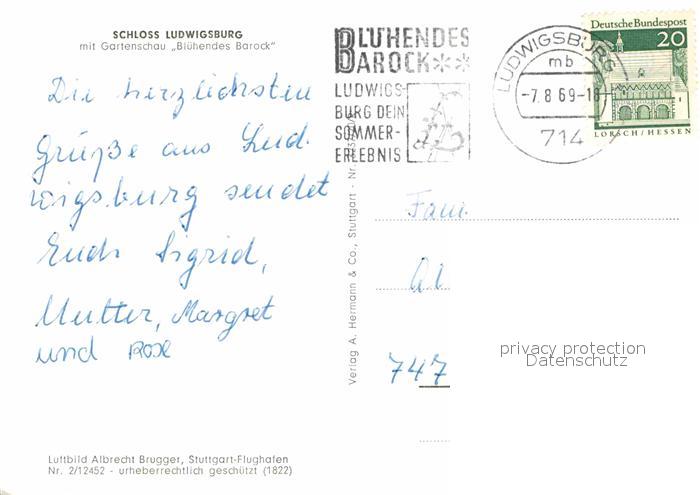 SCHLOSS LUDWIGSBURG
mit Gartenschau „Blühendes Barock"
Die herzlichsten
Grüße aus Lud-
wigsburg sendet
Euch Sigrid,
Mutter, Margret
und Rose
Luftbild Albrecht Brugger, Stuttgart-Flughafen
Nr. 2/12452 - urheberrechtlich geschützt (1822)
Verlag A. Hermann & Co., Stuttgart - Nr.
BLÜHENDES
BAROCK**
LUDWIGS-
BURG DEIN
SOMMER-
ERLEBNIS
LUDWIGSBURG
mb
-7.8.69-18
714
Deutsche Bundespost
20
LORSCH/HESSEN
Fam.
747
privacy protection
Datenschutz